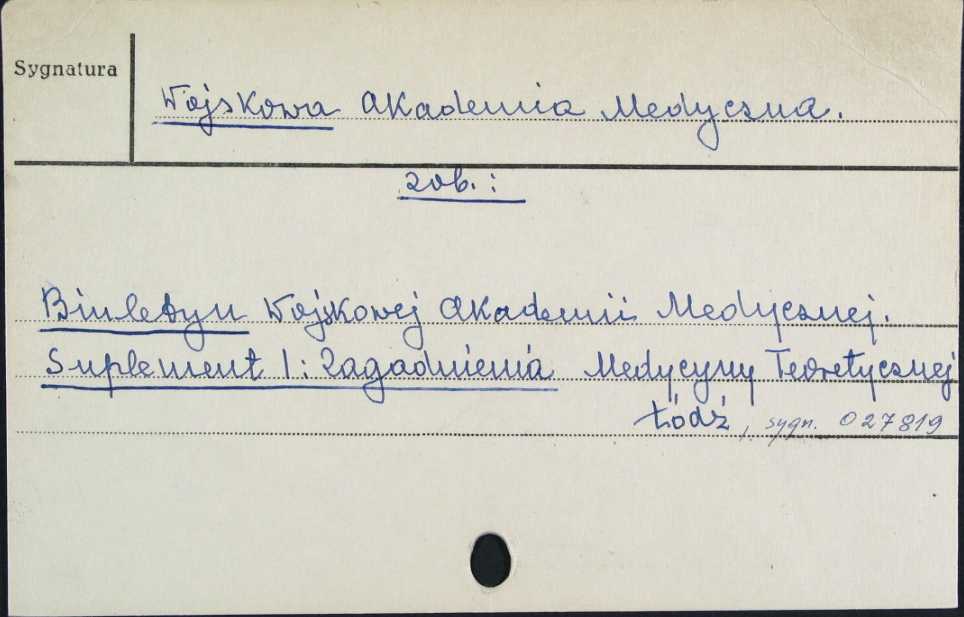 Sygnatura
Wojskowa Akademia Medyczna.
zob.:
Biuletyn Wojskowej Akademii Medycznej.
Suplement 1: Zagadnienia Medycyny Teoretycznej
Łódź, sygn. 027819